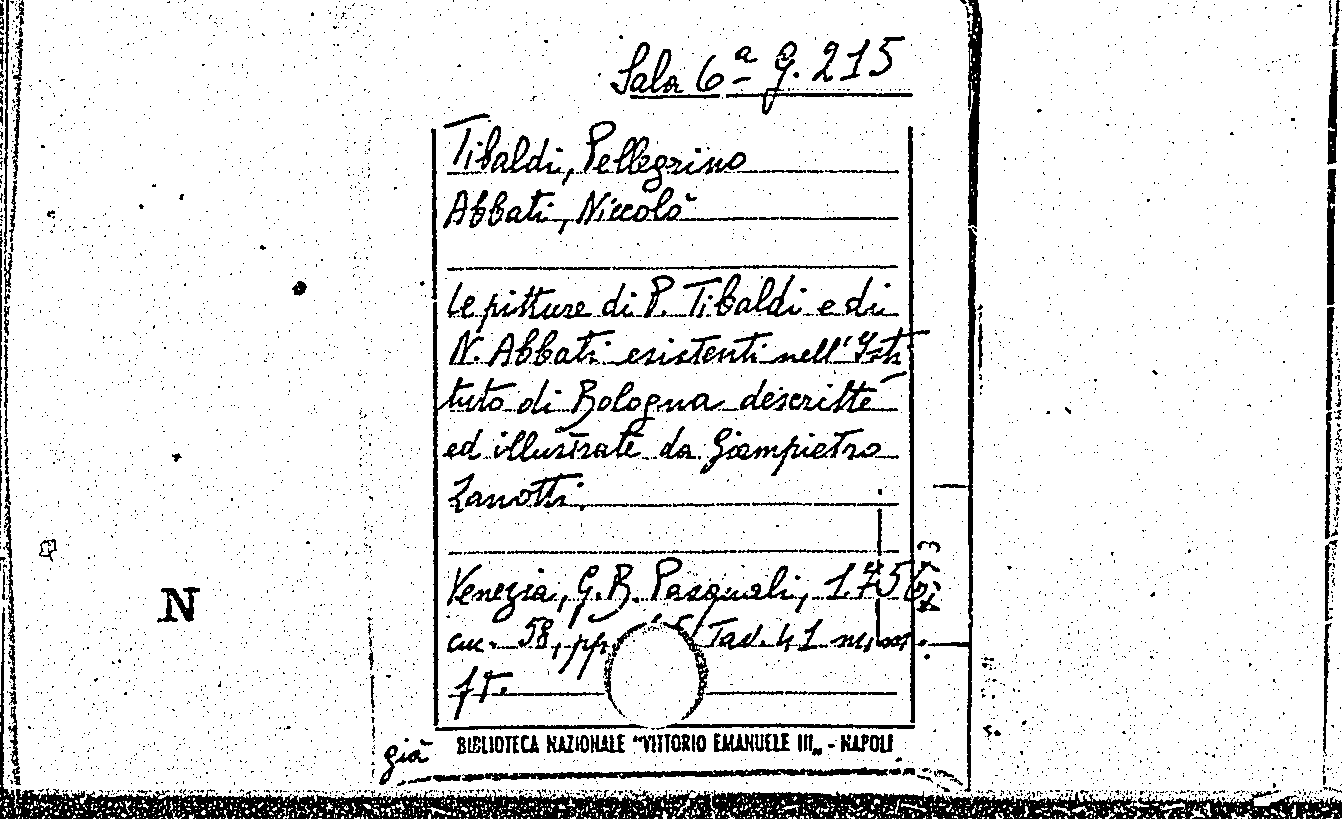 Sala 6ª G. 215
Tibaldi, Pellegrino
Abbati, Niccolò
Le pitture di P. Tibaldi e di
N. Abbati esistenti nell'Isti
tuto di Bologna descritte
ed illustrate da Giampietro
Zanotti.
Venezia, G. B. Pasquali, 1756,
cm. 58, pp. Tav. 41 num.
f.t.
N
già
BIBLIOTECA NAZIONALE "VITTORIO EMANUELE III„ - NAPOLI